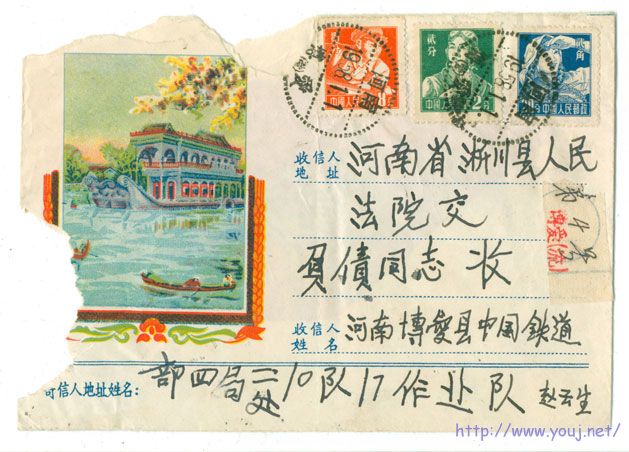 贰分
贰角
中国人民邮政
2分
中国人民邮政
1958.1.1
收信人
地址
河南省淅川县人民
法院交
員債同志 收
第4号
博爱(流)
收信人
姓名
河南博爱县中国鉄道
部四局二处10队17作业队 赵云生
寄信人地址姓名:
http://www.youj.net/